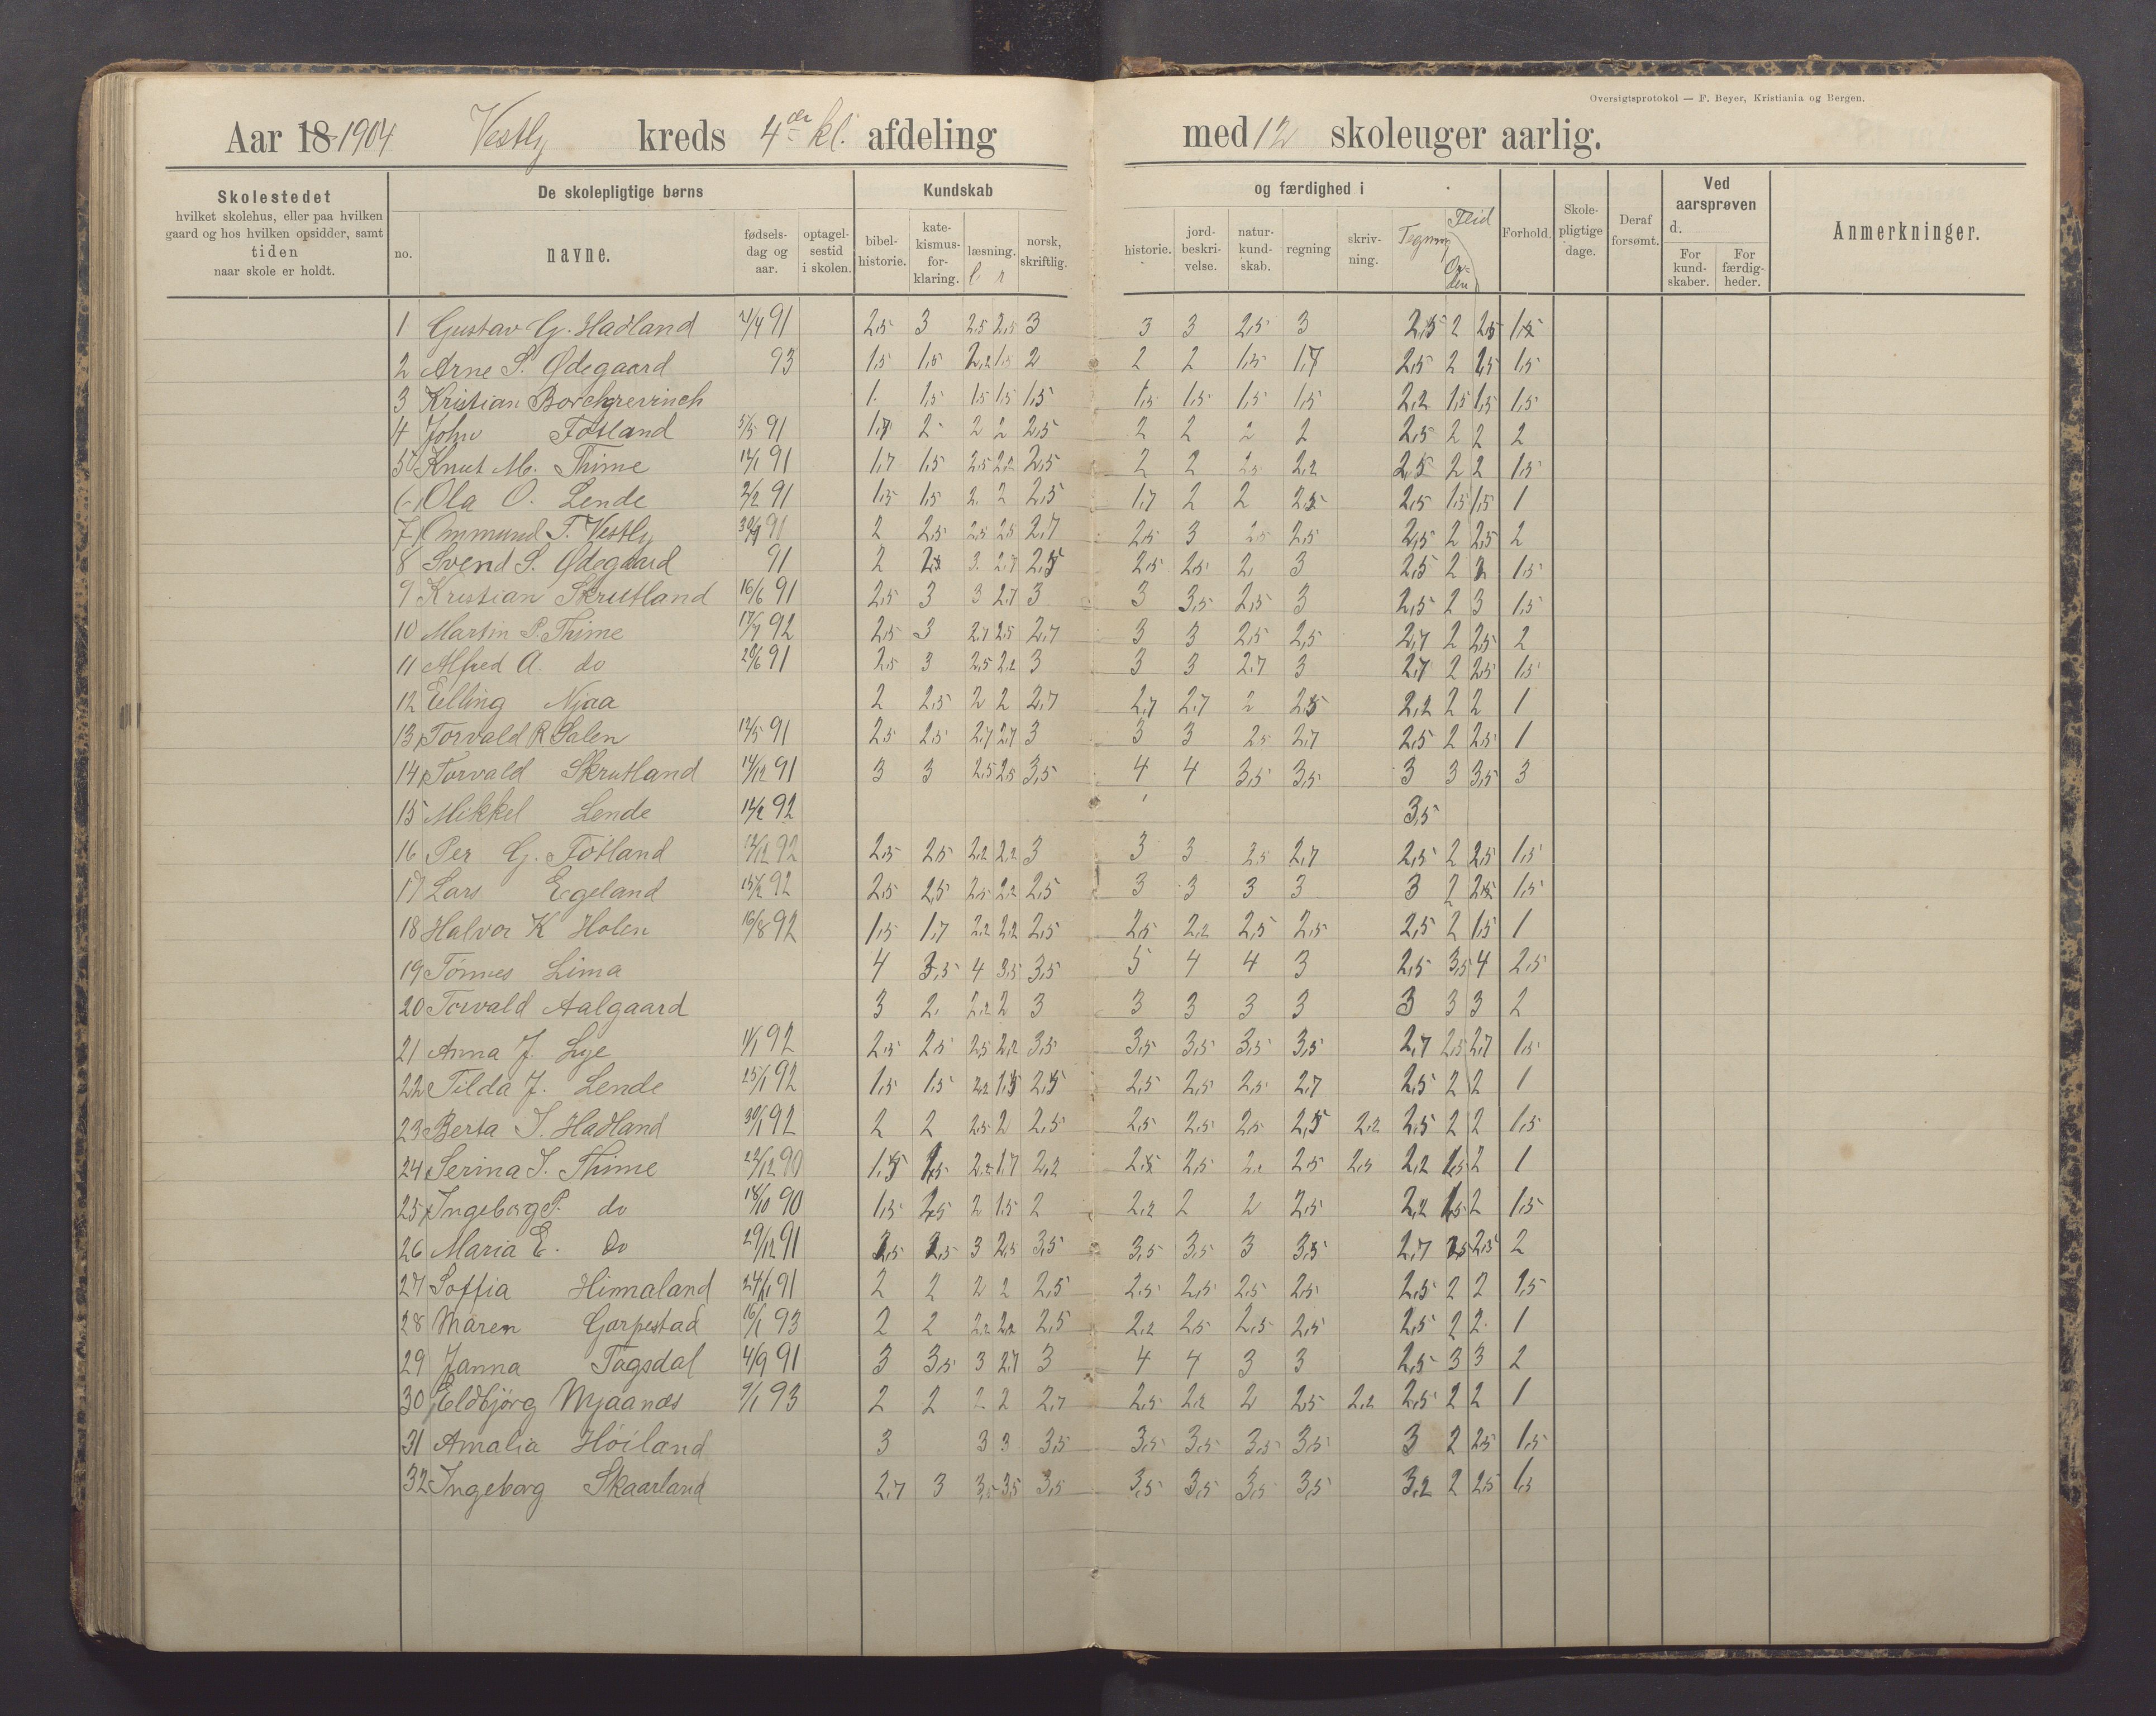 Oversigtsprotokol — F. Beyer, Kristiania og Bergen.
Aar 18 1904 Vestly kreds 4de kl. afdeling med 12 skoleuger aarlig.
Skolestedet hvilket skolehus, eller paa hvilken gaard og hos hvilken opsidder, samt tiden naar skole er holdt.
De skolepligtige børns
no. navne. fødsels-dag og aar. optagel-sestid i skolen.
Kundskab og færdighed i
bibel-historie. kate-kismus-for-klaring. læsning. l r norsk, skriftlig. historie. jord-beskri-velse. natur-kund-skab. regning skriv-ning. Tegning Flid Or-den Forhold.
Skole-pligtige dage. Deraf forsømt.
Ved aarsprøven d. For kund-skaber. For færdig-heder.
Anmerkninger.
1 Gustav G. Hadland 2/4 91 2,5 3 2,5 2,5 3 3 3 2,5 3 2,5 2 2,5 1,5
2 Arne S. Ødegaard 93 1,5 1,5 2,2 1,5 2 2 2 1,5 1,7 2,5 2 1,5 1,5
3 Kristian Borchgrevinch 1 1,5 1,5 1,5 1,5 1,5 1,5 1,5 1,5 2,2 1,5 1,5 1,5
4 John Fosland 5/5 91 1,7 2 2 2 2,5 2 2 2 2 2,5 2 2 2
5 Knut M. Thime 12/1 91 1,7 1,5 2,5 2,2 2,5 2 2 2,5 2,2 2,5 2 2 1,5
6 Ola O. Lende 2/2 91 1,5 1,5 2 2 2,5 1,7 2 2 2,5 2,5 1,5 1,5 1
7 Ommund T. Vestly 91 2 2,5 2,5 2,5 2,7 2,5 3 2,5 2,5 2,5 2 2,5 2
8 Svend S. Ødegaard 91 2 2,5 3 2,7 2,5 2,5 2,5 2 3 2,5 2 2 1,5
9 Kristian Skrutland 16/6 91 2,5 3 3 2,7 3 3 3,5 2,5 3 2,5 2 3 1,5
10 Martin P. Thime 17/7 92 2,5 3 2,7 2,5 2,7 3 3 2,5 2,5 2,7 2 2,5 2
11 Alfred A. do 20/6 91 2,5 3 2,5 2,2 3 3 3 2,7 3 2,7 2 2,5 1,5
12 Elling Njaa 2 2,5 2 2 2,7 2,7 2,7 2 2,5 2,2 2 2 1
13 Torvald R Salen 12/5 91 2,5 2,5 2,7 2,7 3 3 3 2,5 2,7 2,5 2 2,5 1
14 Torvald Skrutland 14/12 91 3 3 2,5 2,5 3,5 4 4 3,5 3,5 3 3 3,5 3
15 Mikkel Lende 14/2 92 3,5
16 Per G. Fosland 12/12 92 2,5 2,5 2,2 2,2 3 3 3 2,5 2,7 2,5 2 2,5 1,5
17 Lars Egeland 15/2 92 2,5 2,5 2,5 2,2 2,5 3 3 3 3 3 2 2,5 1,5
18 Halvor K Holen 16/8 92 1,5 1,7 2,2 2,2 2,5 2,5 2,2 2,5 2,5 2,5 2 1,5 1
19 Tønnes Lima 4 3,5 4 3,5 3,5 5 4 4 3 2,5 3,5 4 2,5
20 Torvald Aalgaard 3 2 2,2 2 3 3 3 3 3 3 3 3 2
21 Anna J. Lye 1/1 92 2,5 2,5 2,5 2,2 3,5 3,5 3,5 3,5 3,5 2,7 2,5 2,7 1,5
22 Tilda J. Lende 25/1 92 1,5 1,5 2,2 1,5 2,5 2,5 2,5 2,5 2,7 2,5 2 2 1
23 Berta S. Hadland 30/1 92 2 2 2,5 2 2,5 2,5 2,5 2,5 2,5 2,2 2,5 2 2 1,5
24 Serina S. Thime 22/12 90 1,5 1,5 2,2 1,7 2,2 2,5 2,5 2 2,5 2,5 2,2 1,5 2 1
25 Ingeborg P. do 18/10 90 1,5 1,5 2 1,5 2 2,2 2 2 2,5 2,2 1,5 2 1,5
26 Maria E. do 29/12 91 2,5 2,5 3 2,5 3,5 3,5 3,5 3 3,5 2,7 2,5 2,5 2
27 Soffia Himaland 24/1 91 2 2 2 2 2,5 2,5 2,5 2,5 2,5 2,5 2 2 1,5
28 Maren Garpestad 16/1 93 2 2 2,2 2,2 2,5 2,2 2,5 2,5 2,5 2,5 2 2 1
29 Janna Tagsdal 4/9 91 3 3,5 3 2,7 3 4 4 3 3 2,5 3 3 2
30 Eldbjörg Njaanæs 9/1 93 2 2 2 2 2,7 2,5 2,2 2 2,5 2,2 2,5 2 2 1
31 Amalia Höiland 3 3 3 3,5 3,5 3,5 3,5 3,5 3 2 2,5 1,5
32 Ingeborg Skaarland 2,7 3 3,5 3,5 3,5 3,5 3,5 3,5 3,5 3,2 2 2,5 1,5